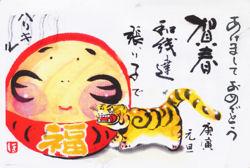 あけまして おめでとう
賀春
和紙達
張り子で
ハリキル
庚寅
元旦
福